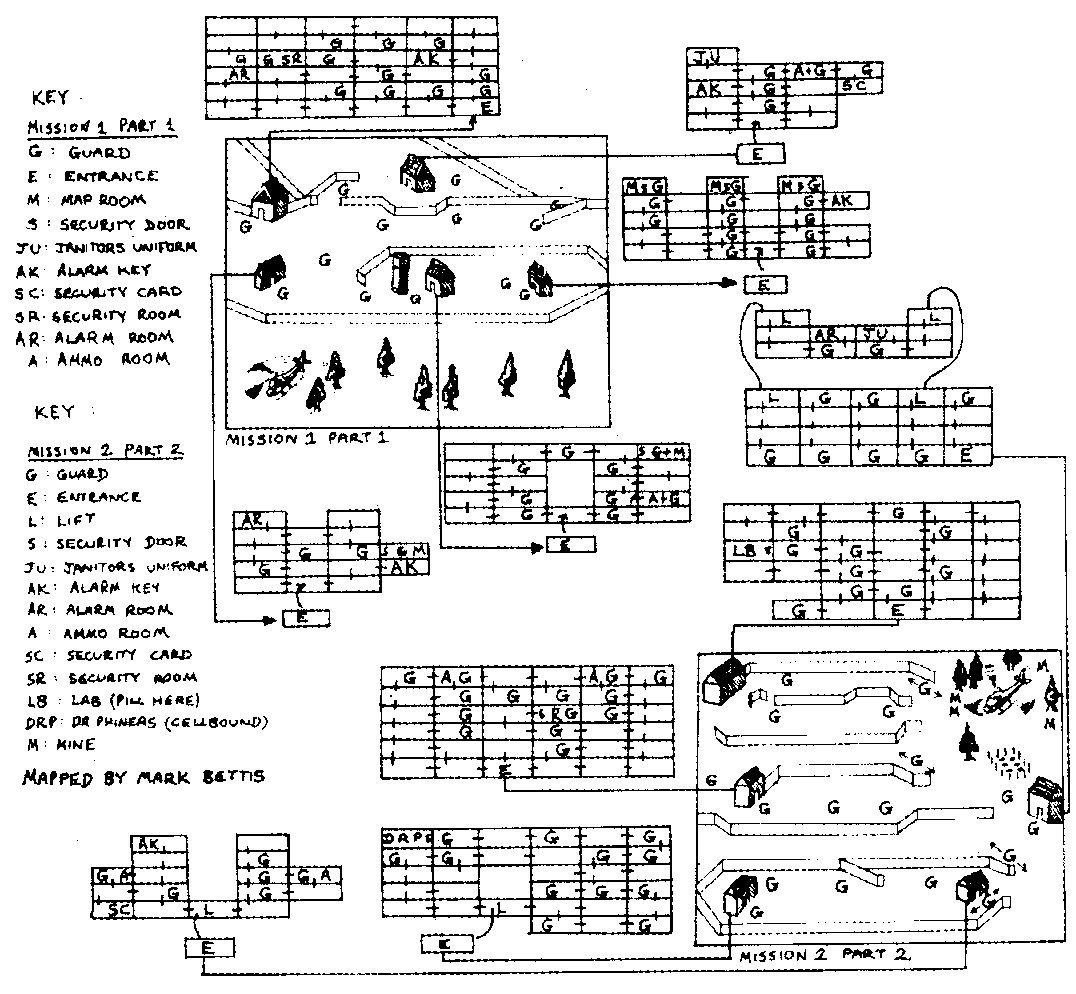 KEY :
MISSION 1 PART 1
G : GUARD
E : ENTRANCE
M : MAP ROOM
S : SECURITY DOOR
JU : JANITORS UNIFORM
AK : ALARM KEY
SC : SECURITY CARD
SR : SECURITY ROOM
AR : ALARM ROOM
A : AMMO ROOM
KEY :
MISSION 2 PART 2
G : GUARD
E : ENTRANCE
L : LIFT
S : SECURITY DOOR
JU : JANITORS UNIFORM
AK : ALARM KEY
AR : ALARM ROOM
A : AMMO ROOM
SC : SECURITY CARD
SR : SECURITY ROOM
LB : LAB (PILL HERE)
DRP : DR PHINEAS (CELLBOUND)
M : MINE
MAPPED BY MARK BETTIS
G G G
G G SR G AK
AR G G
G G G G
E
JU
G A+G G
AK G SC
G
E
M S G M S G M S G
G G G AK
G G
G G
G G
E
G G
G G G
G G G G G
MISSION 1 PART 1
L L
AR JU
G G
L G G L G
G G G G E
G S G+M
G G
G A A+G
G G
E
AR
G G S G M
G AK
E
G
G G
LB S G G
G G
G G
G E
G A G A G G
G G G
G S R G G
G
G
E
M
G G M
G M
G G M
G
G
G G G G
G
G
G G G
G G
MISSION 2 PART 2
AK
G
G A G G A
G G
SC L
E
D R P S G G G
G G G G
G G G
L G G
E